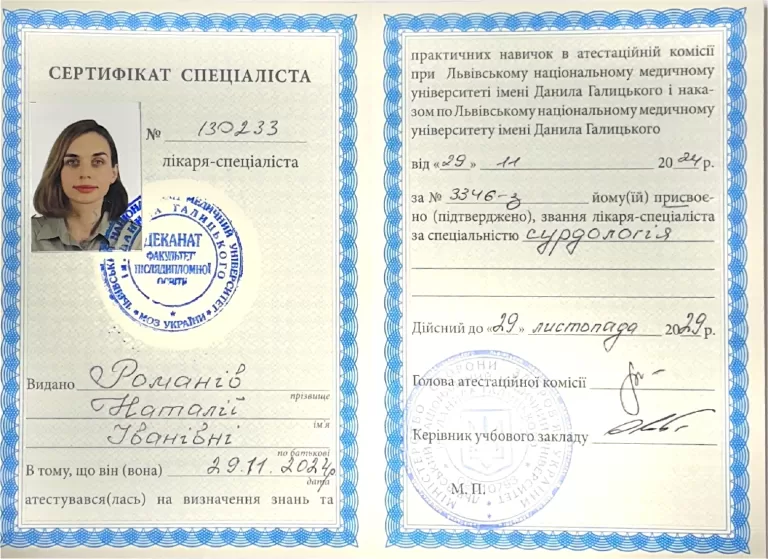 СЕРТИФІКАТ СПЕЦІАЛІСТА
№ 130233
лікаря-спеціаліста
ДЕКАНАТ
ФАКУЛЬТЕТ
ПІСЛЯДИПЛОМНОЇ
ОСВІТИ
МОЗ УКРАЇНИ
Видано Романів
прізвище
Наталії
ім'я
Іванівні
по батькові
В тому, що він (вона) 29.11.2024р
дата
атестувався(лась) на визначення знань та
практичних навичок в атестаційній комісії
при Львівському національному медичному
університеті імені Данила Галицького і нака-
зом по Львівському національному медичному
університету імені Данила Галицького
від «29» 11 2024р.
за № 3346-з йому(їй) присвоє-
но (підтверджено), звання лікаря-спеціаліста
за спеціальністю сурдологія
Дійсний до «29» листопада 2029р.
Голова атестаційної комісії
Керівник учбового закладу
М. П.